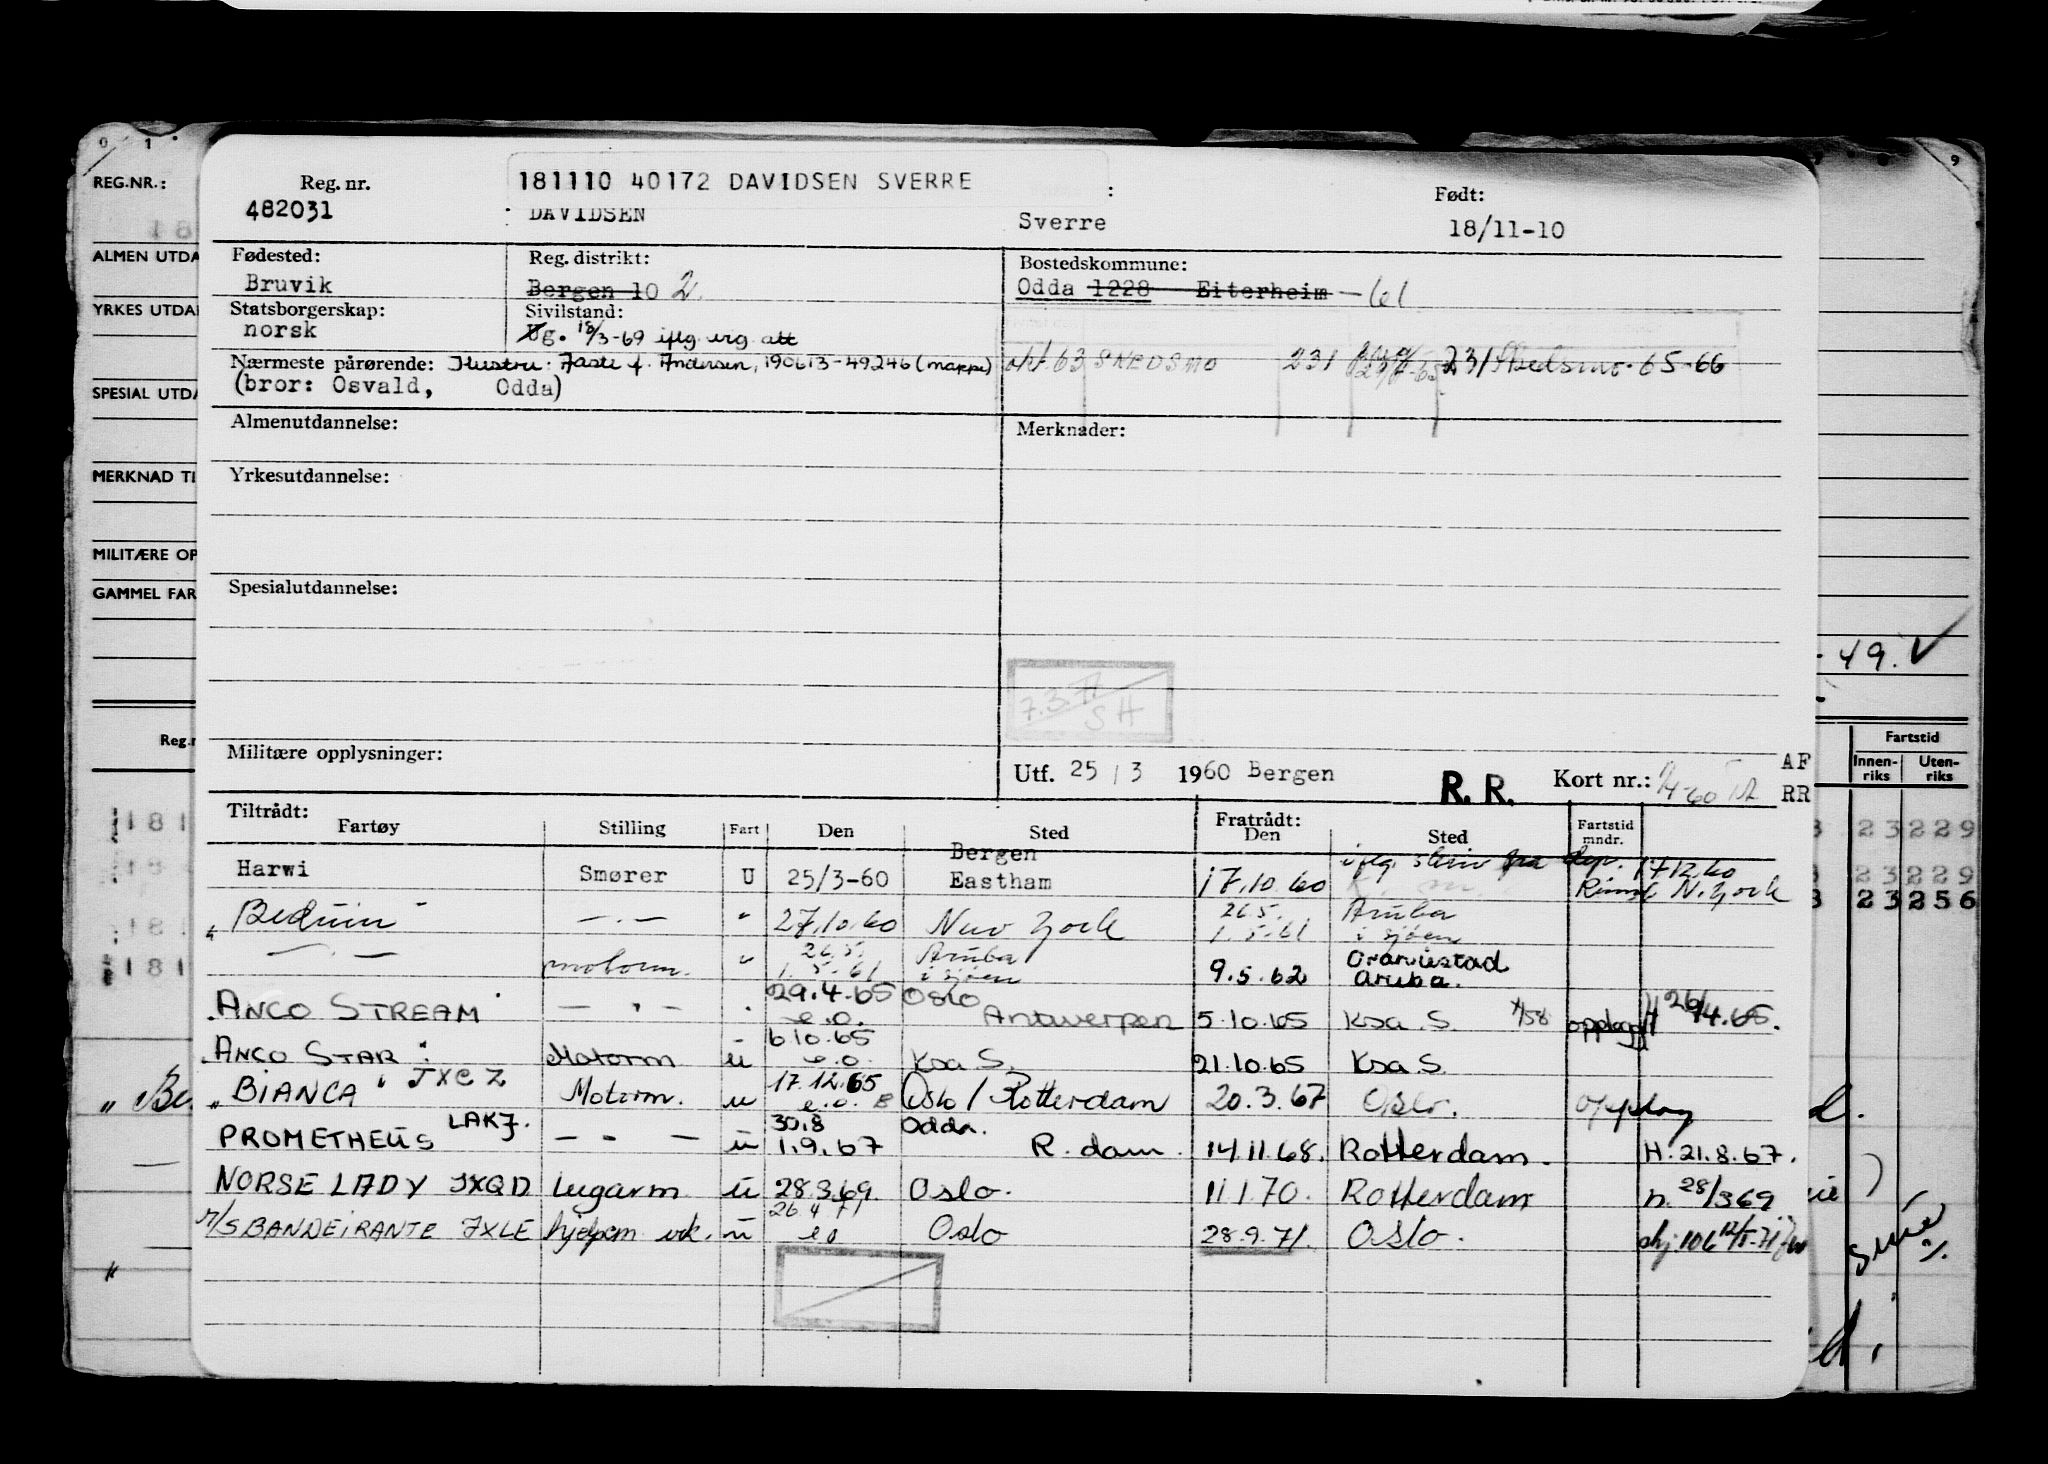 Reg. nr.
181110 40172 DAVIDSEN SVERRE
:
Født:
482031
DAVIDSEN
Sverre
18/11-10
Fødested:
Reg. distrikt:
Bostedskommune:
Bruvik
Bergen 10 2
Odda 1228 Eiterheim
Statsborgerskap:
Sivilstand:
norsk
Ug. 18/3-69 iflg. erg. att
Nærmeste pårørende: Hustru: Aasle f. Andersen, 190613-49246 (mappe)
63 SKEDSMO 231
231 Skedsmo. 65-66
(bror: Osvald, Odda)
Almenutdannelse:
Merknader:
Yrkesutdannelse:
Spesialutdannelse:
7.3.
SH
Militære opplysninger:
Utf. 25 / 3 1960 Bergen
R. R.
Kort nr.:
AF
RR
Tiltrådt:
Fratrådt:
Fartøy
Stilling
Fart
Den
Sted
Den
Sted
Fartstid
mndr.
Harwi
Smører
U
25/3-60
Bergen
Eastham
17.10.60
iflg. skriv fra dep. 17/12.60
N. York
" Beduin "
— . —
"
27.10.60
New York
26.5.
1.5.61
Aruba
i sjøen
— . —
motorm.
"
26.5.
1.5.61
Aruba
i sjøen
9.5.62
Oraniestad
Aruba.
ANCO STREAM
— " —
29.4.65
e.o.
Oslo
Antwerpen
5.10.65
Ksa. S.
opplagt
26/4.65.
ANCO STAR
Motorm
u
6.10.65
e.o.
Ksa S.
21.10.65
Ksa S.
" BIANCA " JXCZ
Motorm.
u
17.12.65
e.o.
Oslo / Rotterdam
20.3.67
Oslo.
opplag
PROMETHEUS LAKJ.
— " —
u
30.8
1.9.67
Odda.
R. dam.
14.11.68.
Rotterdam.
H. 21.8.67.
NORSE LADY JXQD
Lugarm
u
28.3.69.
Oslo.
11.1.70.
Rotterdam
h. 28/3 69
M/S BANDEIRANTE JXLE
hjelpem
u
26.4.71
e.o
Oslo
28.9.71.
Oslo.
0 1
REG.NR.:
ALMEN UTDA
YRKES UTDA
SPESIAL UTDA
MERKNAD TI
MILITÆRE OP
GAMMEL FAR
Reg.n
181
9
49. ✓
Fartstid
Innen-
riks
Uten-
riks
23 229
23 229
23 256